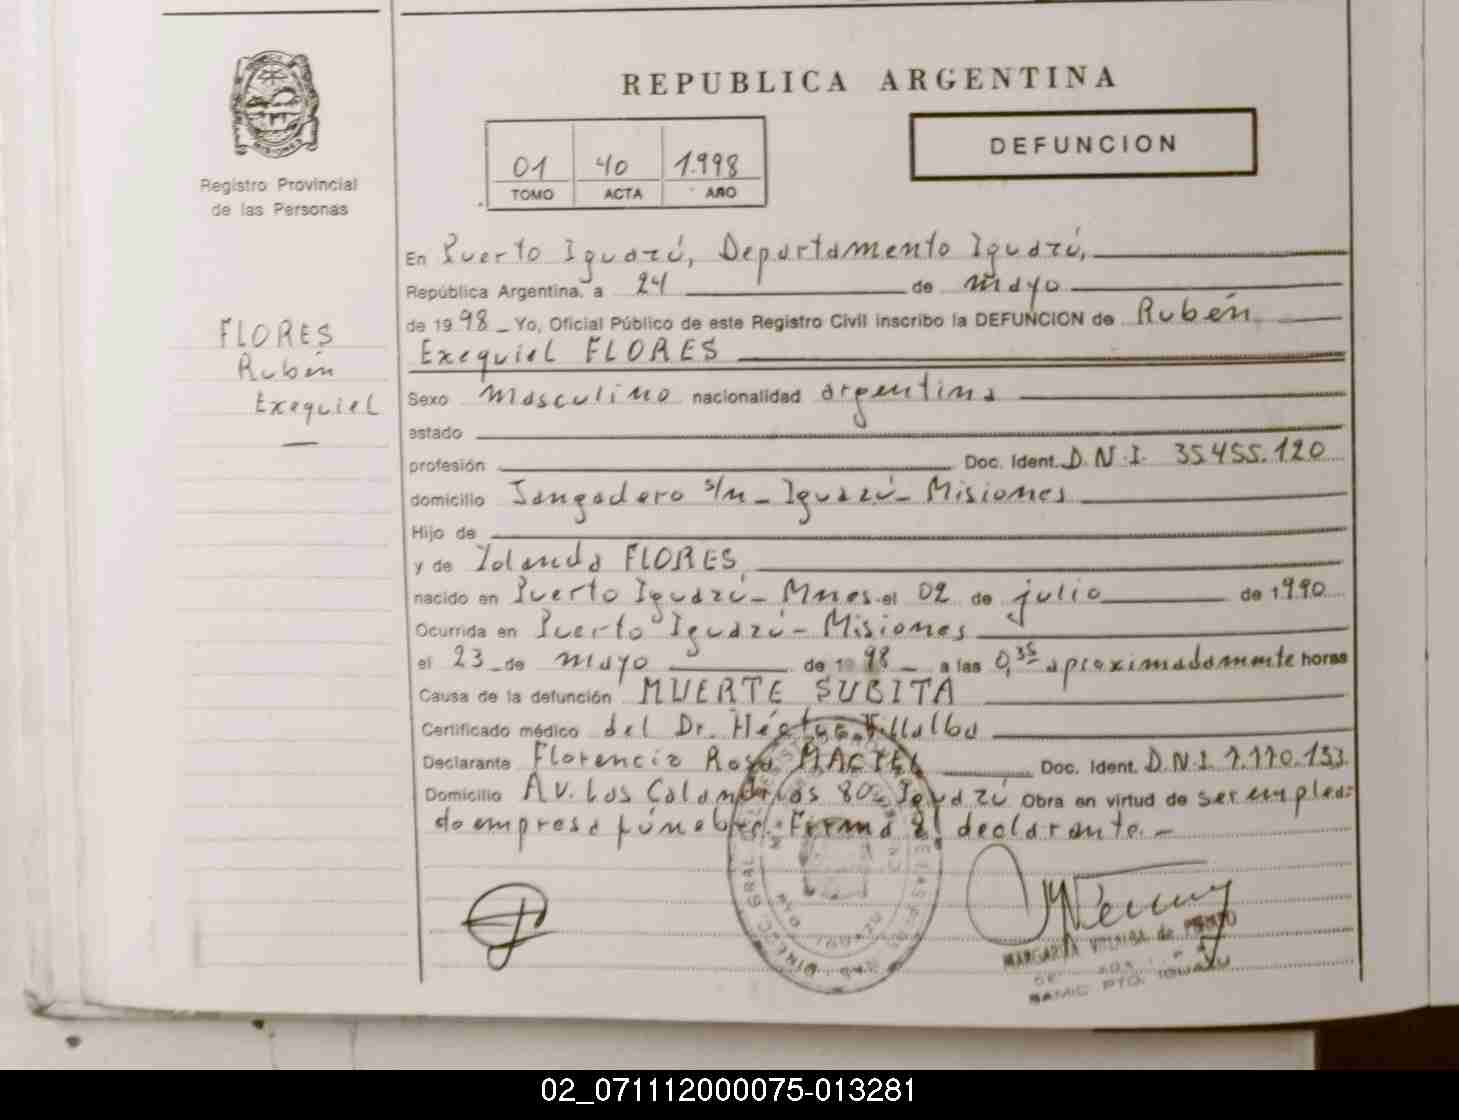 REPUBLICA ARGENTINA
DEFUNCION
01 40 1.998
TOMO ACTA AÑO
MISIONES
Registro Provincial
de las Personas
FLORES
Rubén
Exequiel
En Puerto Iguazú, Departamento Iguazú,
República Argentina, a 24 de mayo
de 1998 Yo, Oficial Público de este Registro Civil inscribo la DEFUNCION de Rubén
Exequiel FLORES
Sexo masculino nacionalidad argentina
estado
profesión Doc. Ident. D.N.I. 35.455.120
domicilio Jangadero s/n - Iguazú - Misiones
Hijo de
y de Yolanda FLORES
nacido en Puerto Iguazú - Mnes. el 02 de julio de 1990
Ocurrida en Puerto Iguazú - Misiones
el 23 de mayo de 1998 a las 0,35 aproximadamente horas
Causa de la defunción MUERTE SUBITA
Certificado médico del Dr. Héctor Villalba
Declarante Florencia Rosa MACIEL Doc. Ident. D.N.I.
Domicilio Av. Los Iguazú Obra en virtud de ser emplea-
do empresa fúnebre. Firma el declarante.-
MARGARITA de
SAMIC PTO. IGUAZU
02_071112000075-013281